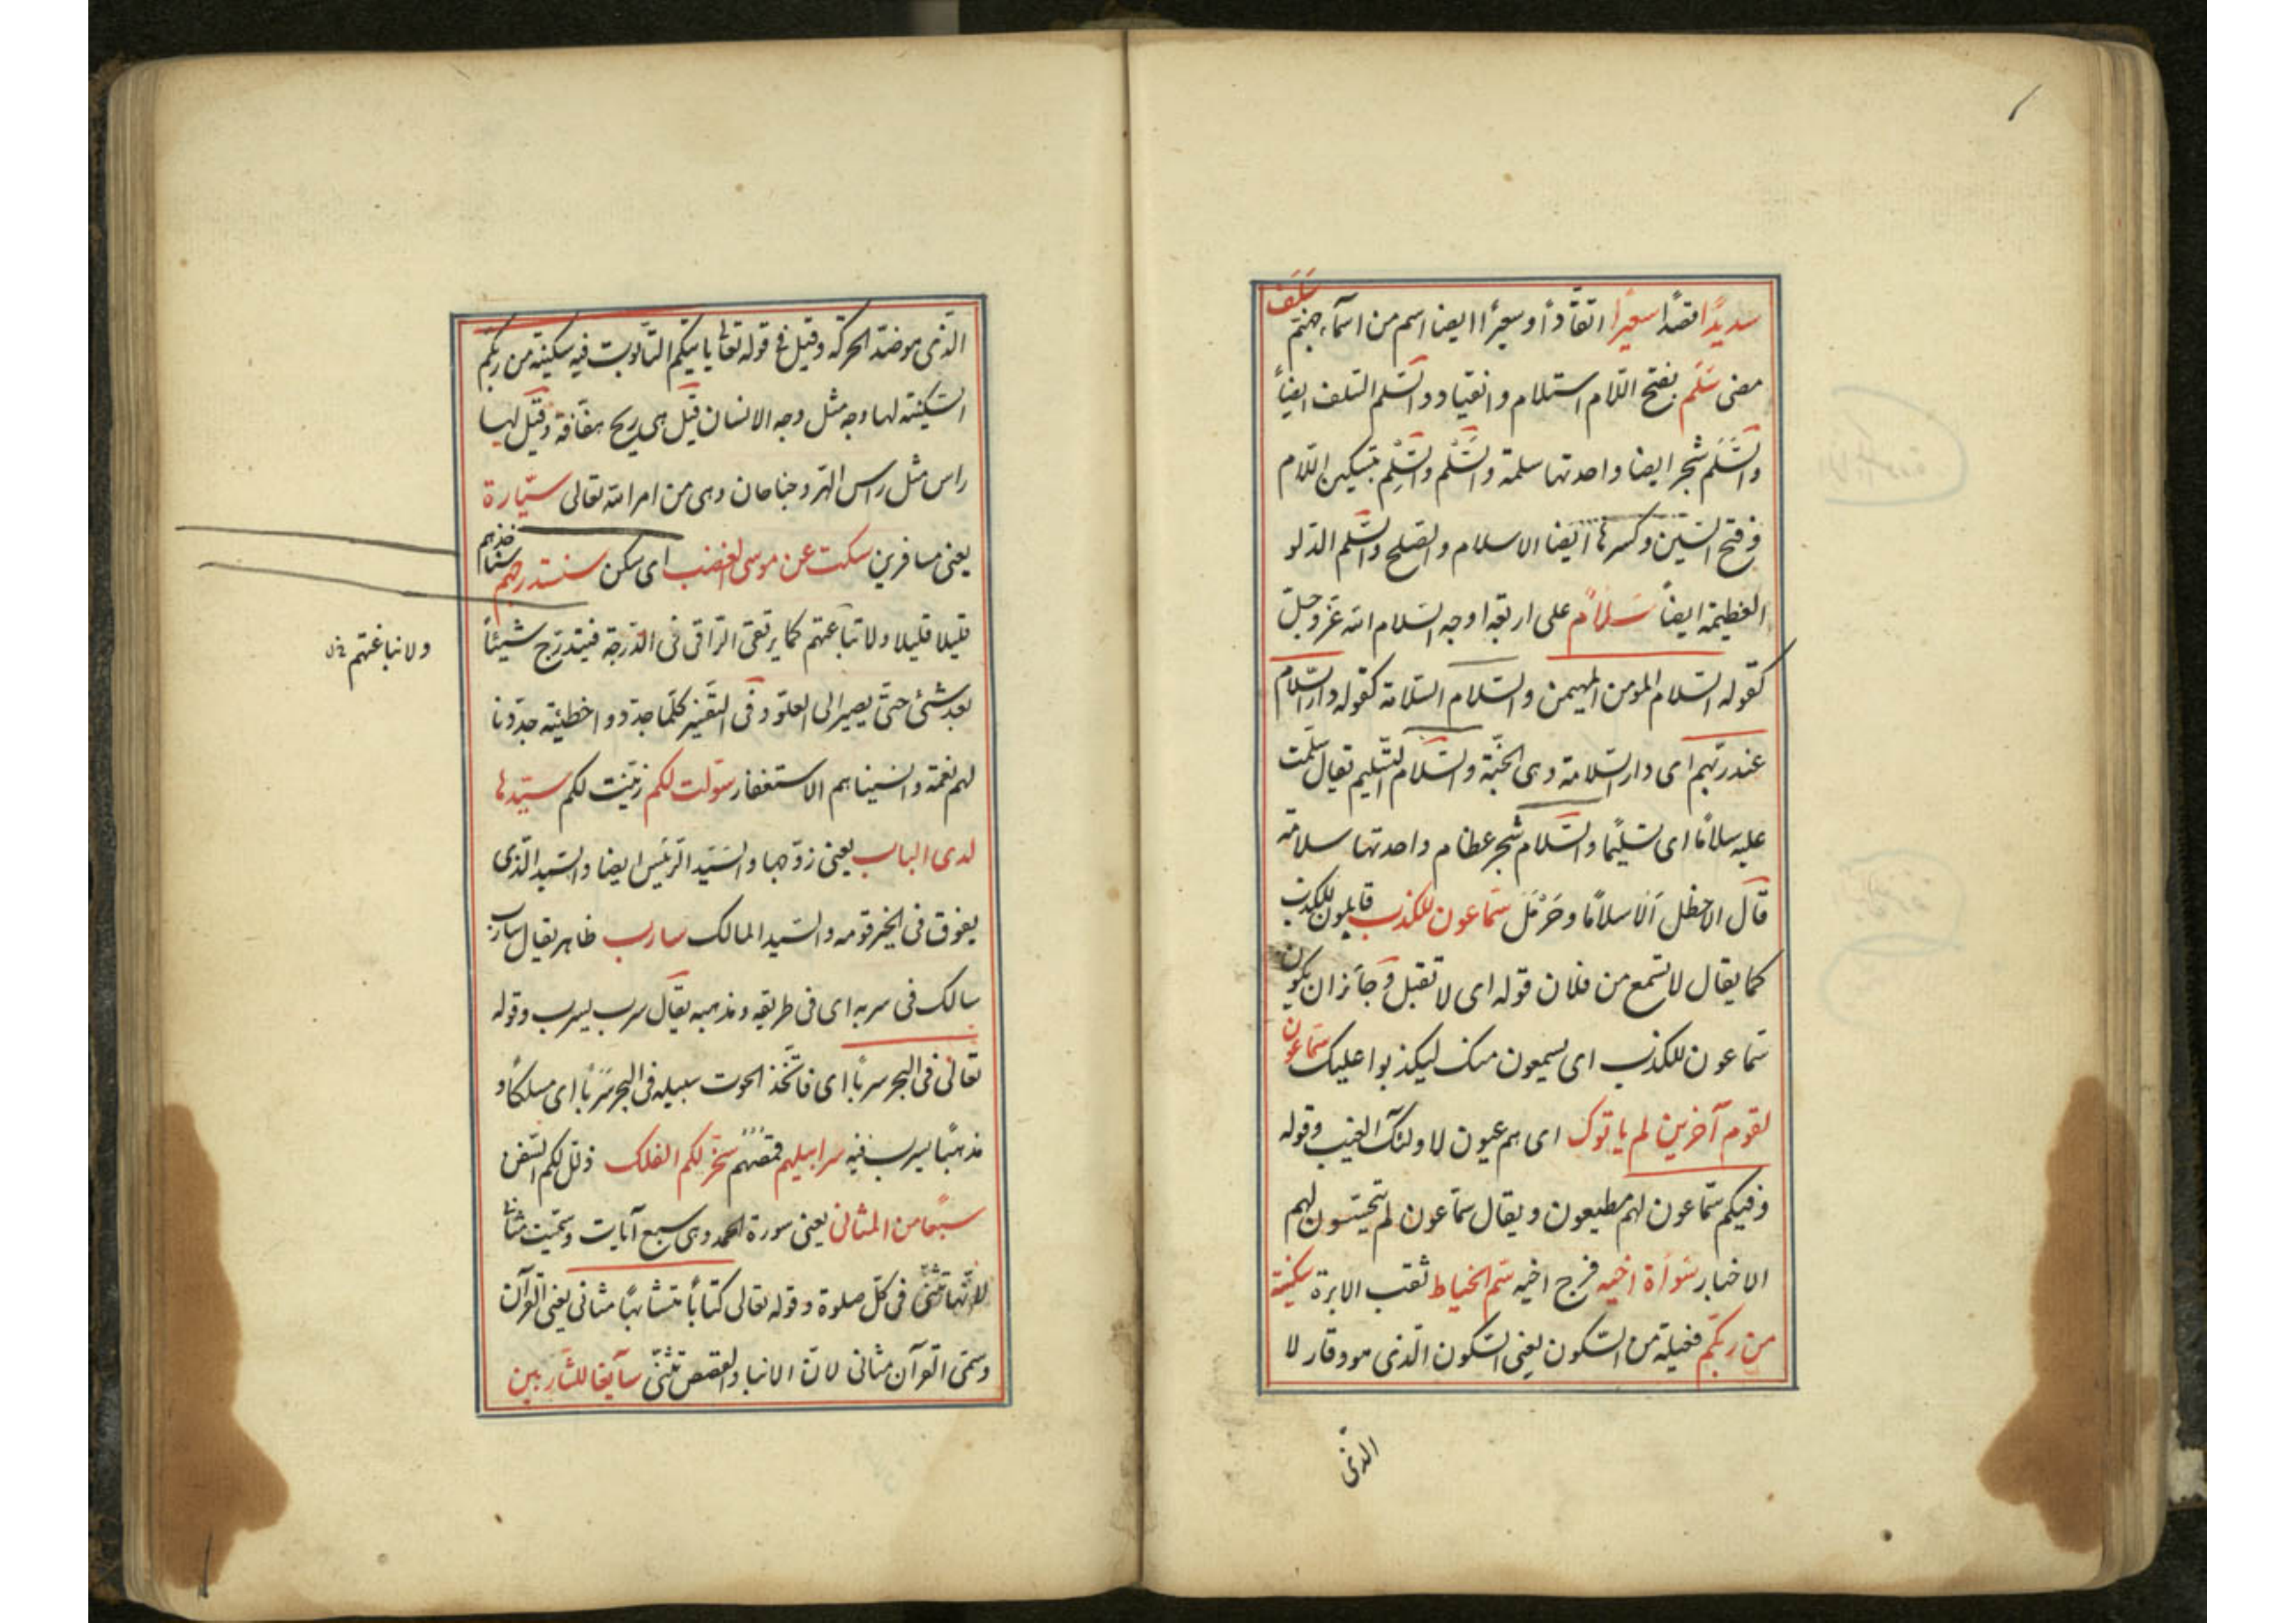 سديدًا قصدًا سعيرا اتقادًا وسعيرًا ايضا اسم من اسماء جهنم سَلَف
مضى سَلَم بفتح اللام استسلام وانقياد والسَّلم السلف ايضاً
والسَّلَم شجر ايضا واحدتها سلمة والسَّلْم والسِّلْم بتسكين اللام
وفتح السين وكسرها ايضا الاسلام والصلح والسَّلم الدلو
العظيمة ايضاً سَلامٌ على اربعة اوجه السلام الله عزّوجلّ
كقوله السلام المؤمن المهيمن والسلام السلامة كقوله دار السّلام
عند ربّهم اى دار السلامة وهى الجنّة والسَّلام التسليم تقال سلّمت
عليه سلامًا اى تسليمًا والسَّلام شجر عظام واحدتها سلامة
قال الاخطل اَلاسلامًا وحَرْمَل سمّاعون للكذب قابلون للكذب
كما يقال لا تسمع من فلان قوله اى لا تقبل وجائز ان يكون
سمّاعون للكذب اى يسمعون منك ليكذبوا عليك سمّاعون
لقوم آخرين لم ياتوك اى هم عيون لاولئك الغيب وقوله
وفيكم سمّاعون لهم مطيعون ويقال سمّاعون لم يتجسّسون لهم
الاخبار سَوأة اخيه فرج اخيه سَم الخياط ثقب الابرة سكينة
من ربّكم فعيلة من السكون يعنى السكون الّذى هو وقار لا
الذى
الّذى هو ضدّ الحركة وقيل فى قوله تعالى ياتيكم التابوت فيه سكينة من ربكم
السكينة لها وجه مثل وجه الانسان قيل هى ريح هفّافة وقيل لها
راس مثل راس الهرّ وجناحان وهى من امر الله تعالى سيّارة
يعنى مسافرين سكت عن موسى الغضب اى سكن سنستدرجهم
قليلا قليلا ولا نباغتهم كما يرتقى الرّاقى فى الدّرجة فيتدرّج شيئاً
بعد شئ حتّى يصير الى العلوّ وفى التفسير كلّما جدّدوا خطيئة جدّدنا
لهم نعمة وانسيناهم الاستغفار سوّلت لكم زيّنت لكم سيّدها
لدى الباب يعنى زوجها والسَّيّد الرّئيس ايضا والسّيد الّذى
يفوق فى الخير قومه والسّيد المالك سارب ظاهر يقال سارب
سالك فى سربه اى فى طريقه ومذهبه يقال سرب يسرب وقوله
تعالى فى البحر سربًا اى فاتّخذ الحوت سبيله فى البحر سَرَبًا اى مسلكًا و
مذهبًا يسرب فيه سرابيلهم قمصهم سخّر لكم الفلك ذلّل لكم السّفن
سبعًا من المثانى يعنى سورة الحمد وهى سبع آيات وسمّيت مثانى
لانّها تثنى فى كلّ صلوة وقوله تعالى كتابًا متشابهًا مثانى يعنى القرآن
وسمّى القرآن مثانى لانّ الانبا والقصص تثنّى سآيغا للشّاربين
ولا نباغتهم